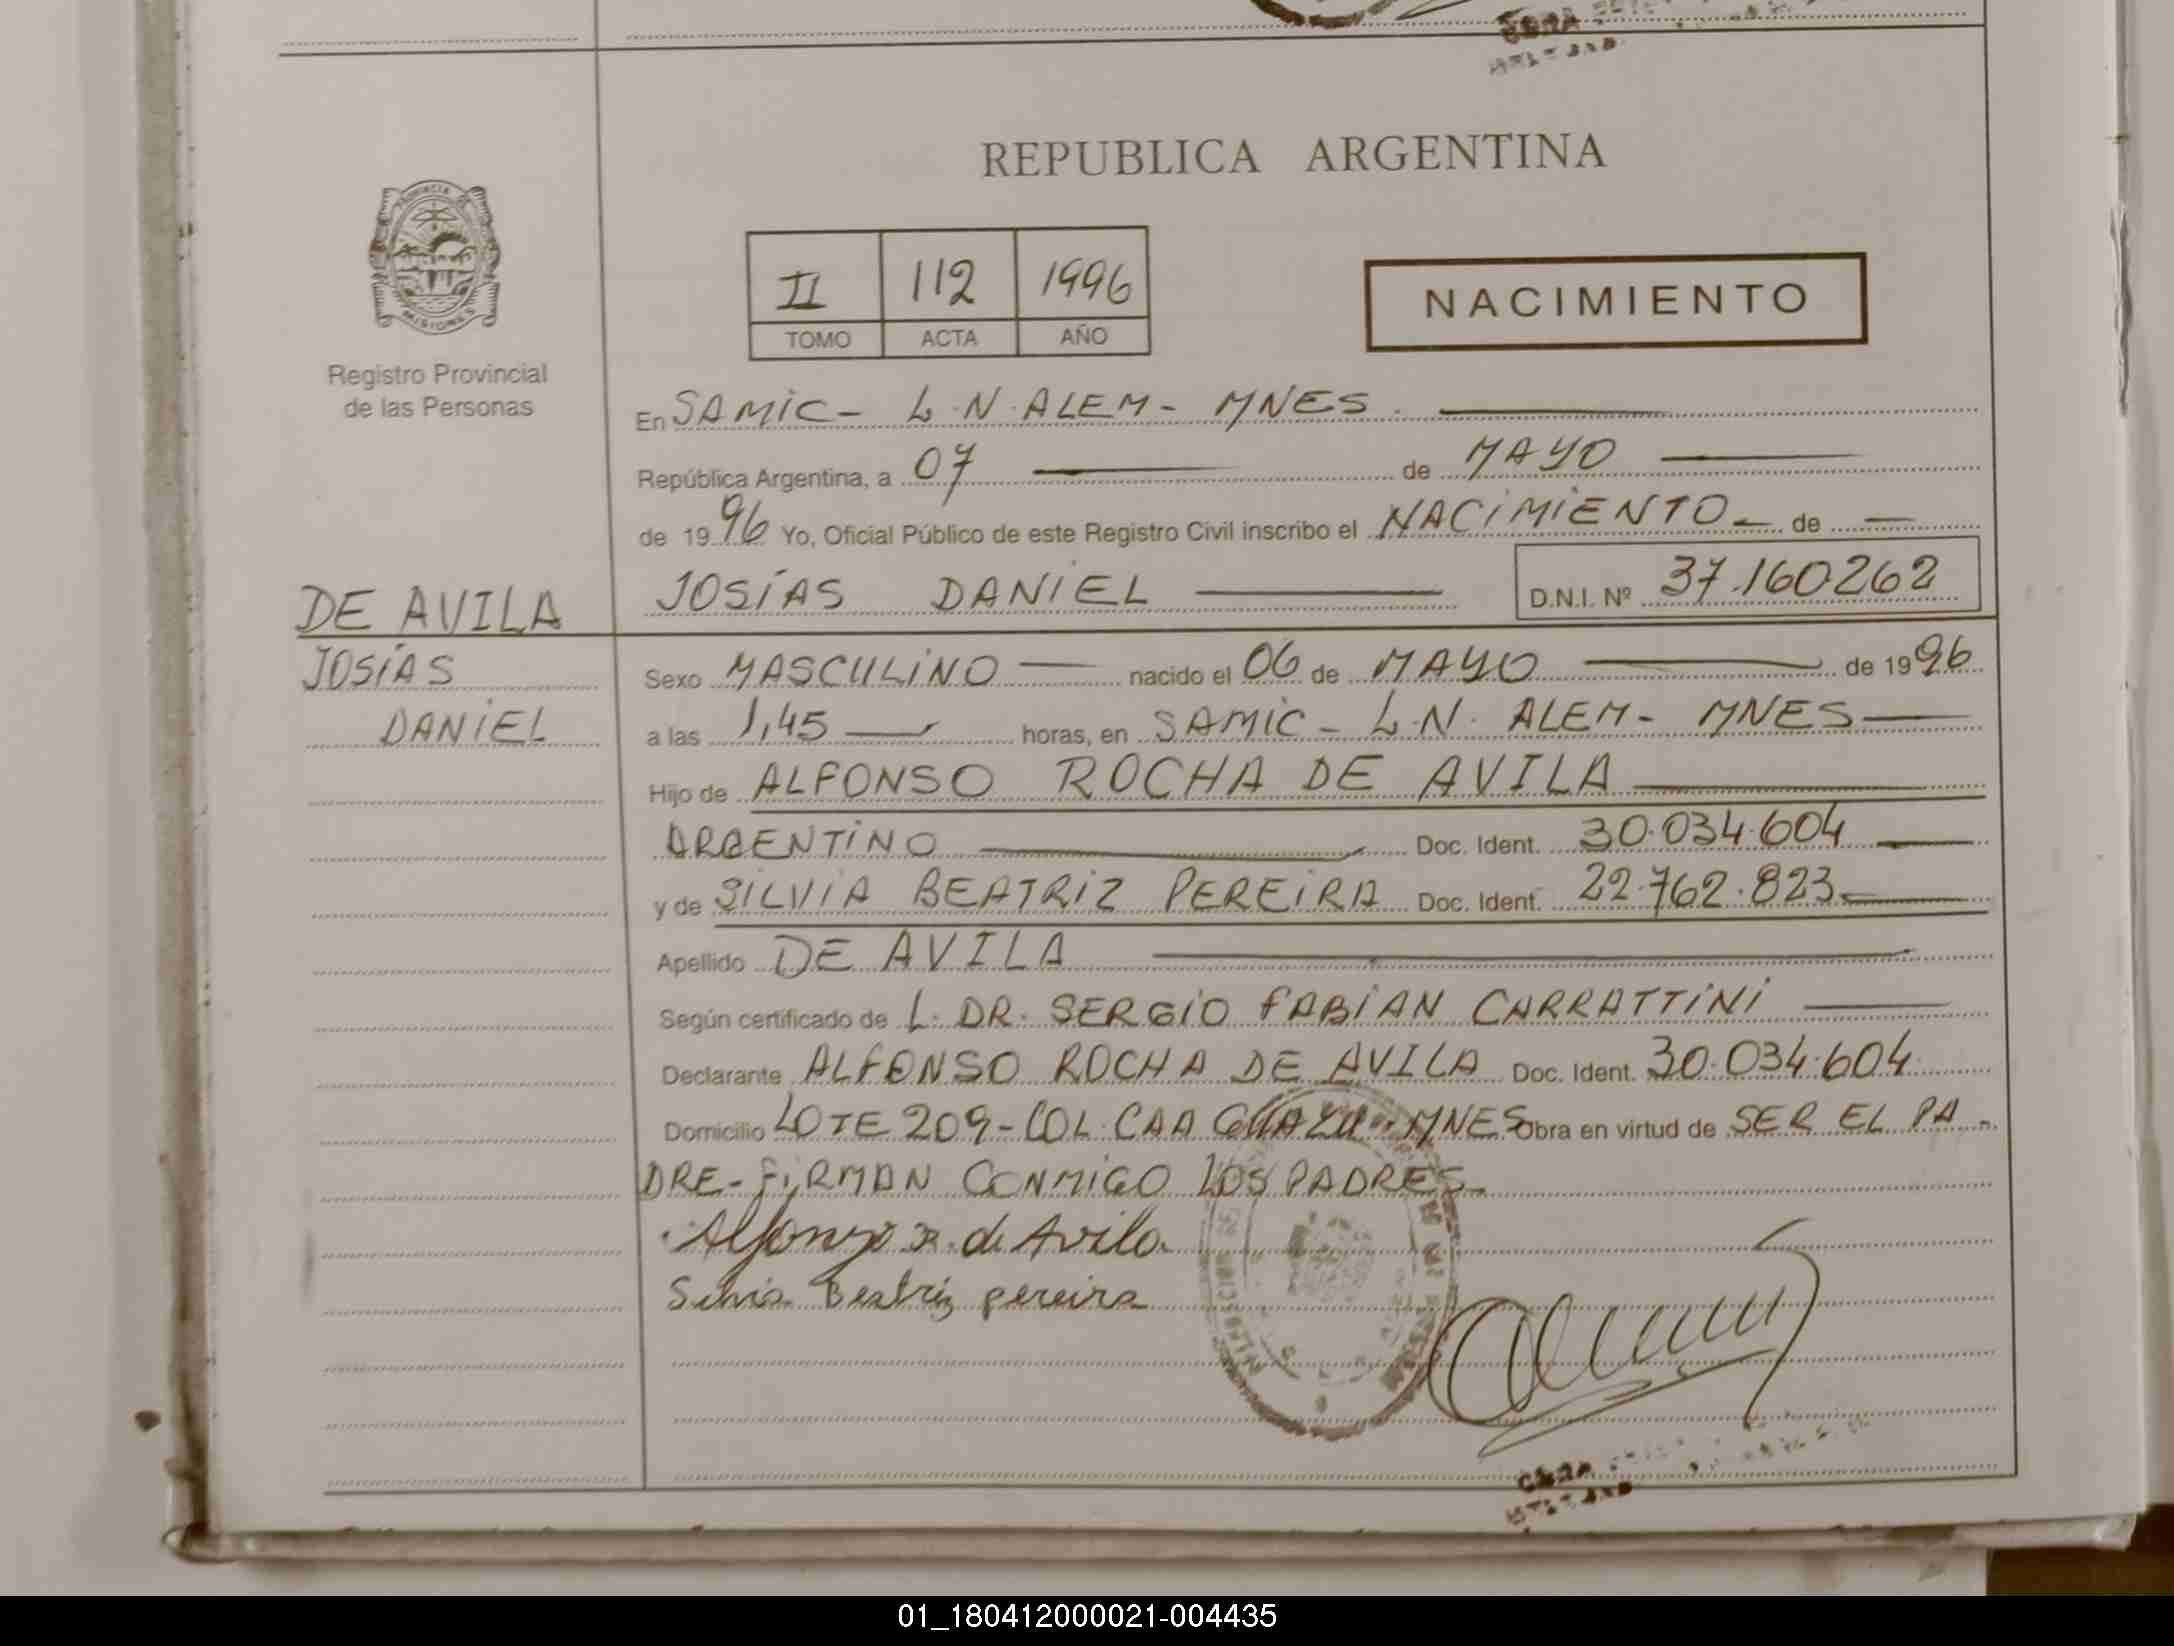 REPUBLICA ARGENTINA
PROVINCIA DE
MISIONES
Registro Provincial
de las Personas
II 112 1996
TOMO ACTA AÑO
NACIMIENTO
En SAMIC - L.N. ALEM - MNES.
República Argentina, a 07 de MAYO
de 1996 Yo, Oficial Público de este Registro Civil inscribo el NACIMIENTO - de -
JOSÍAS DANIEL D.N.I. Nº 37.160262
DE AVILA
JOSÍAS
DANIEL
Sexo MASCULINO nacido el 06 de MAYO de 1996
a las 1,45 horas, en SAMIC - L.N. ALEM - MNES
Hijo de ALFONSO ROCHA DE AVILA
ARGENTINO Doc. Ident. 30.034.604
y de SILVIA BEATRIZ PEREIRA Doc. Ident. 22.762.823
Apellido DE AVILA
Según certificado de L. DR. SERGIO FABIAN CARRATTINI
Declarante ALFONSO ROCHA DE AVILA Doc. Ident. 30.034.604
Domicilio LOTE 209 - COL. CAA GUAZU - MNES Obra en virtud de SER EL PA-
DRE - FIRMAN CONMIGO LOS PADRES
Alfonzo R. de Avila
Silvia Beatriz pereira
01_180412000021-004435